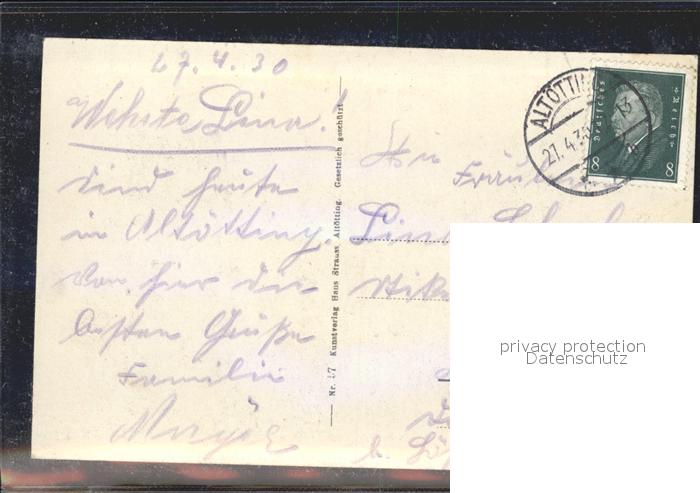 27.4.30
Werte Lina!
Sind heute
in Altötting.
Von hier die
besten Grüße
Familie
An
Fräulein
Lina
Nr. 17 Kunstverlag Hans Strauss, Altötting. Gesetzlich geschützt
ALTÖTTING
27.4.30
13
Deutsches Reich
8 8
privacy protection
Datenschutz